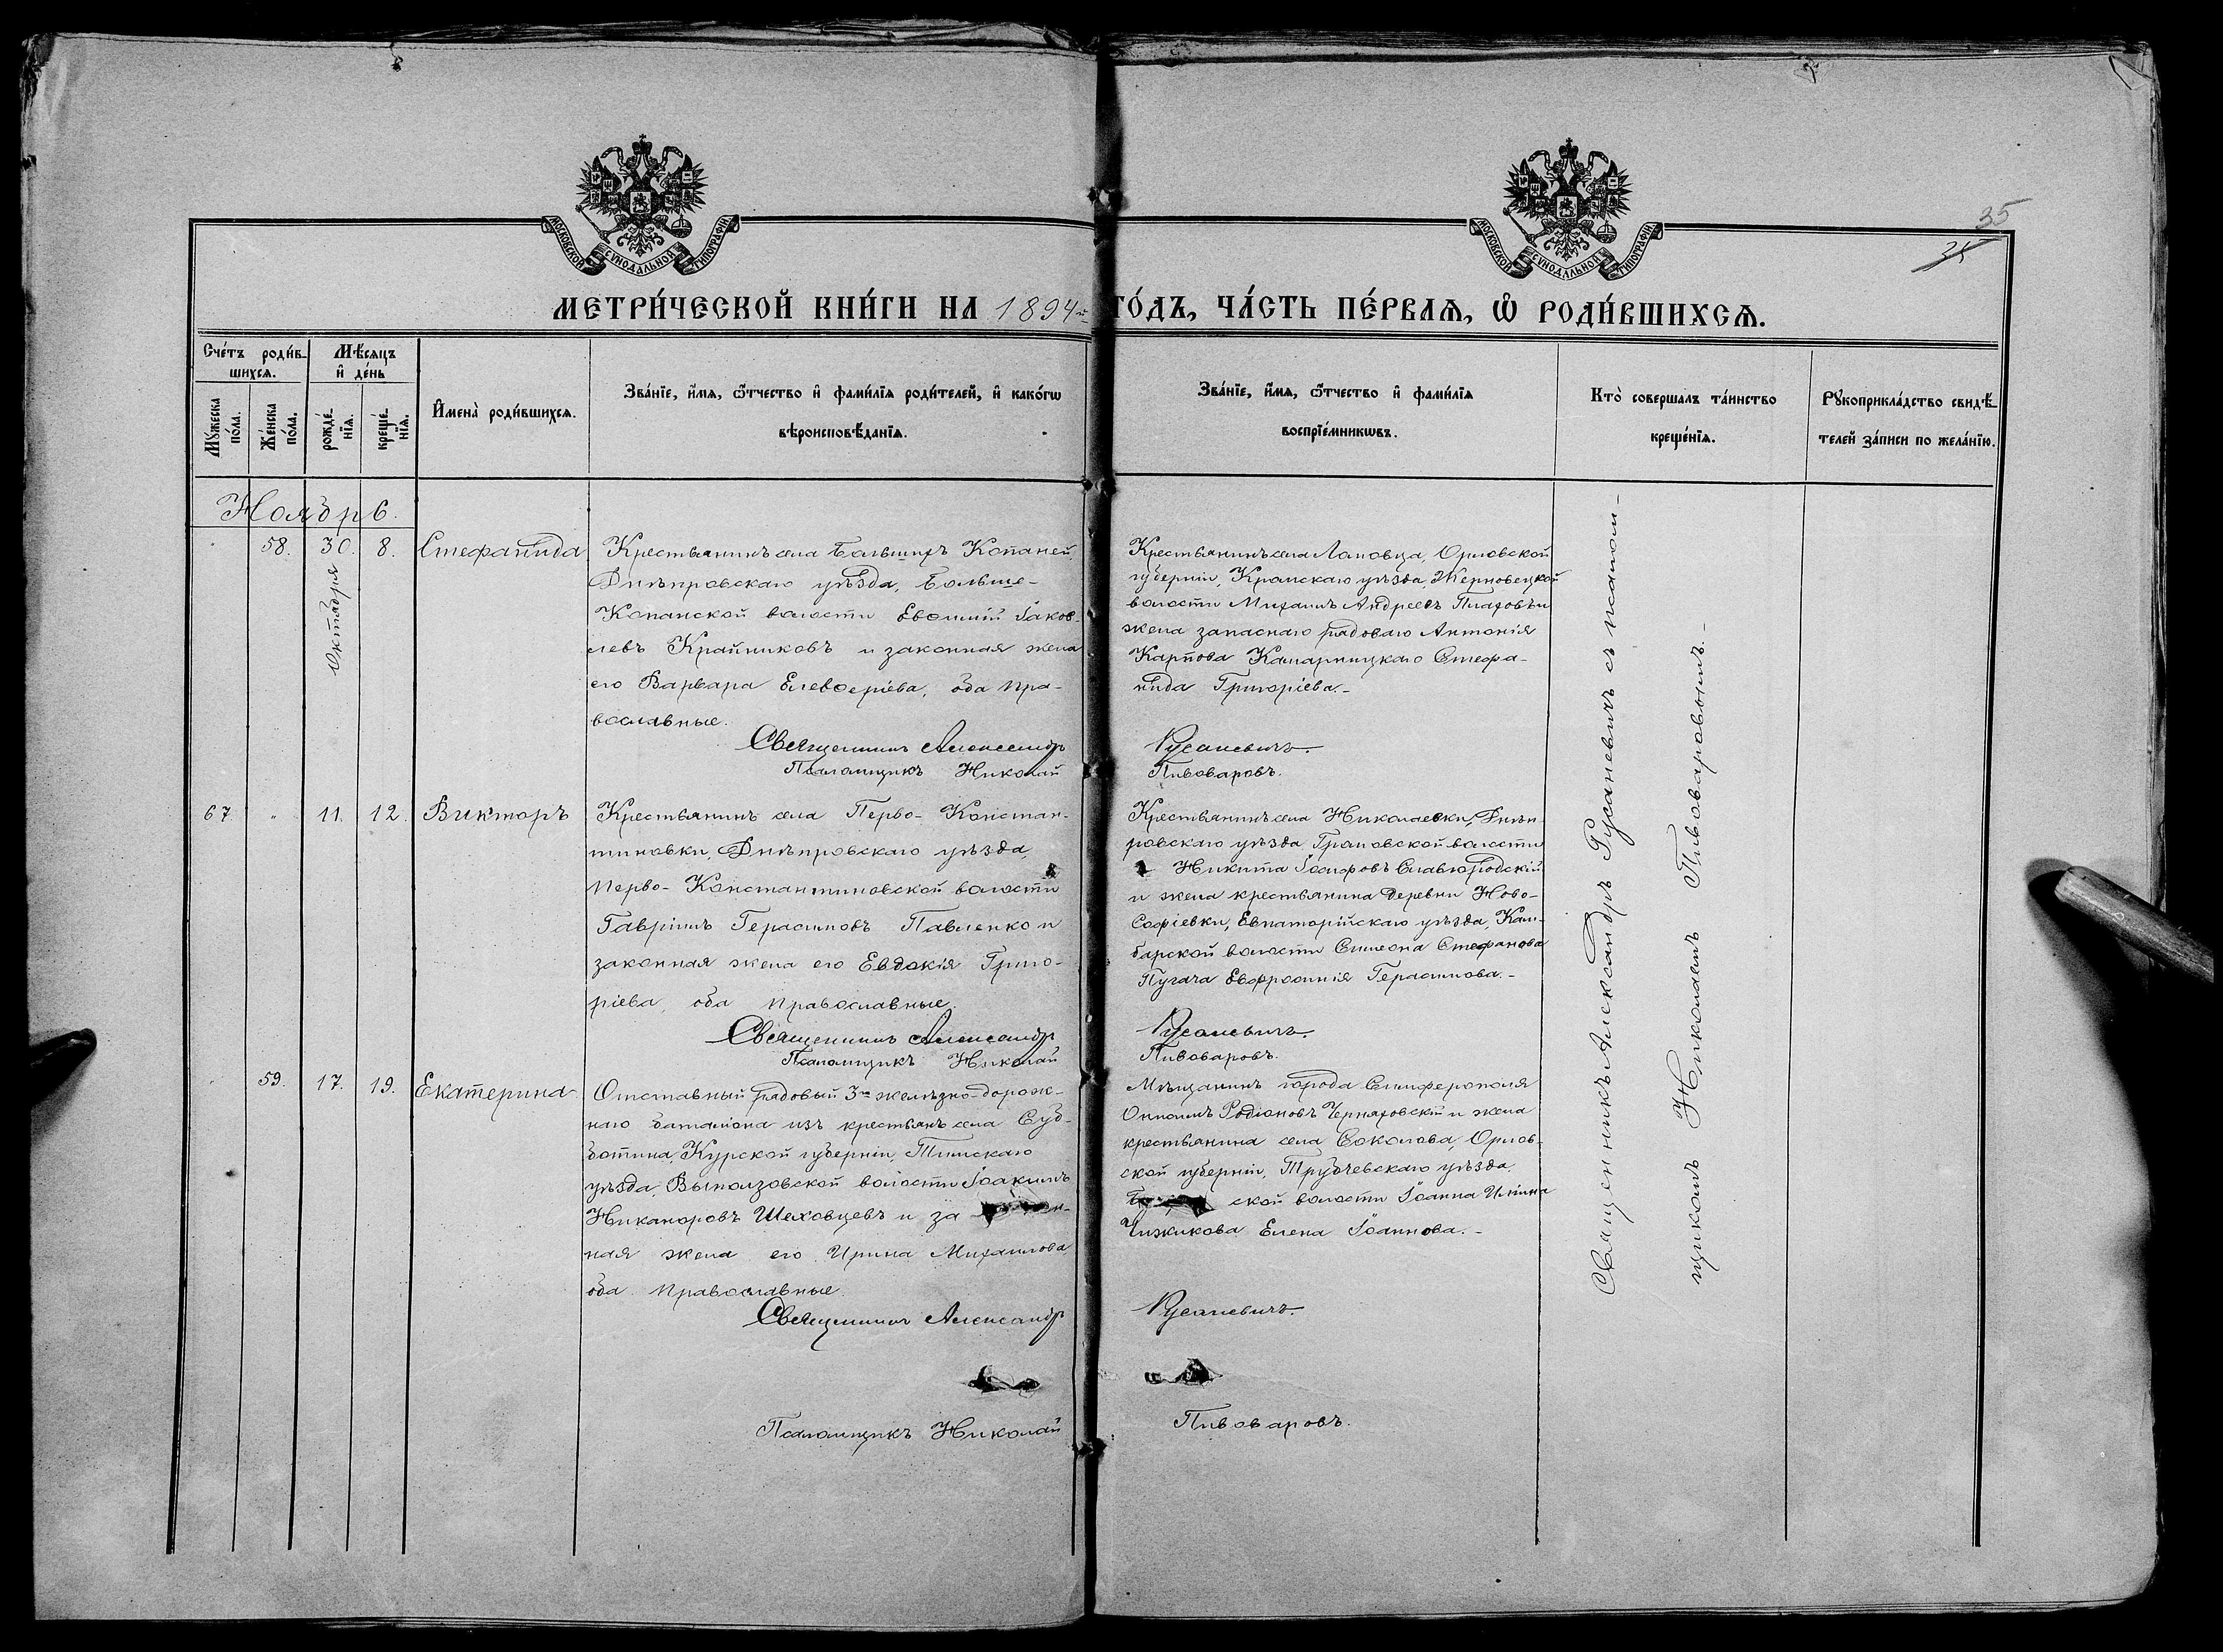 МОСКОВСКОЙ СѴНОДАЛЬНОЙ ТИПОГРАФІИ
МОСКОВСКОЙ СѴНОДАЛЬНОЙ ТИПОГРАФІИ
35
МЕТРИ́ЧЕСКОЙ КНИ́ГИ НА 1894й ГО́ДЪ, ЧА́СТЬ ПЕ́РВАѦ, Ѡ҆ РОДИ́ВШИХСѦ.
Сче́тъ роди́в-
шихсѧ.
Мꙋ́жеска
по́ла.
Же́нска
по́ла.
Мѣ́сѧцъ
и҆ де́нь
рожде́-
нїѧ.
креще́-
нїѧ.
И҆мена̀ роди́вшихсѧ.
Зва́нїе, и҆́мѧ, ѻ҆́тчество и҆ фами́лїѧ роди́телей, и҆ како́гѡ
вѣроисповѣ́данїѧ.
Зва́нїе, и҆́мѧ, ѻ҆́тчество и҆ фами́лїѧ
воспрїе́мникѡвъ.
Кто̀ соверша́лъ та́инство
креще́нїѧ.
Рꙋкоприкла́дство свидѣ́-
телей за́писи по жела́нїю.
Ноябрь.
58. 30. 8. Стефанида
Октября
Крестьянинъ села Большихъ Копаней
Днѣпровскаго уѣзда, Больше-
Копанской волости Евѳимій Іаков-
левъ Крайниковъ и законная жена
его Варвара Елевѳеріева, оба пра-
вославные.
Священникъ Александр
Псаломщикъ Николай
Крестьянинъ села Ломовца, Орловской
губерніи, Кромскаго уѣзда, Жерновецкой
волости Михаилъ Андреевъ Платовъ и
жена запаснаго рядоваго Антонія
Карпова Камарницкаго Стефа-
нида Григоріева.-
Русаневичъ.
Пивоваровъ.
67 " 11. 12. Викторъ
Крестьянинъ села Перво- Констан-
тиновки, Днѣпровскаго уѣзда,
Перво- Константиновской волости
Гавріилъ Герасимовъ Павленко и
законная жена его Евдокія Григо-
ріева, оба православные.
Священникъ Александр
Псаломщикъ Николай
Крестьянинъ села Николаевки, Днѣп-
ровскаго уѣзда, Громовской волости
Никита Іосифовъ Славгородскій
и жена крестьянина деревни Ново-
Софіевки, Евпаторійскаго уѣзда, Кам-
барской волости Симеона Стефанова
Пугача Евфросинія Герасимова.-
Русаневичъ.
Пивоваровъ.
59. 17. 19. Екатерина
Отставный рядовый 3го желѣзно-дорож-
наго баталіона изъ крестьянъ села Суб-
ботина, Курской губерніи, Тимскаго
уѣзда, Выползовской волости Іоакимъ
Никаноровъ Шеховцевъ и за
ная жена его Ирина Михаилова,
оба православные.
Священникъ Александр
Псаломщикъ Николай
Мѣщанинъ города Симферополя
Родіоновъ Черняховскій и жена
крестьянина села Соколова, Орлов-
ской губерніи, Трубчевскаго уѣзда,
ской волости Іоанна Ильина
Чижикова Елена Іоаннова.-
Русаневичъ.
Пивоваровъ.
Священникъ Александръ Русаневичъ съ псалом-
щикомъ Николаемъ Пивоваровымъ.-